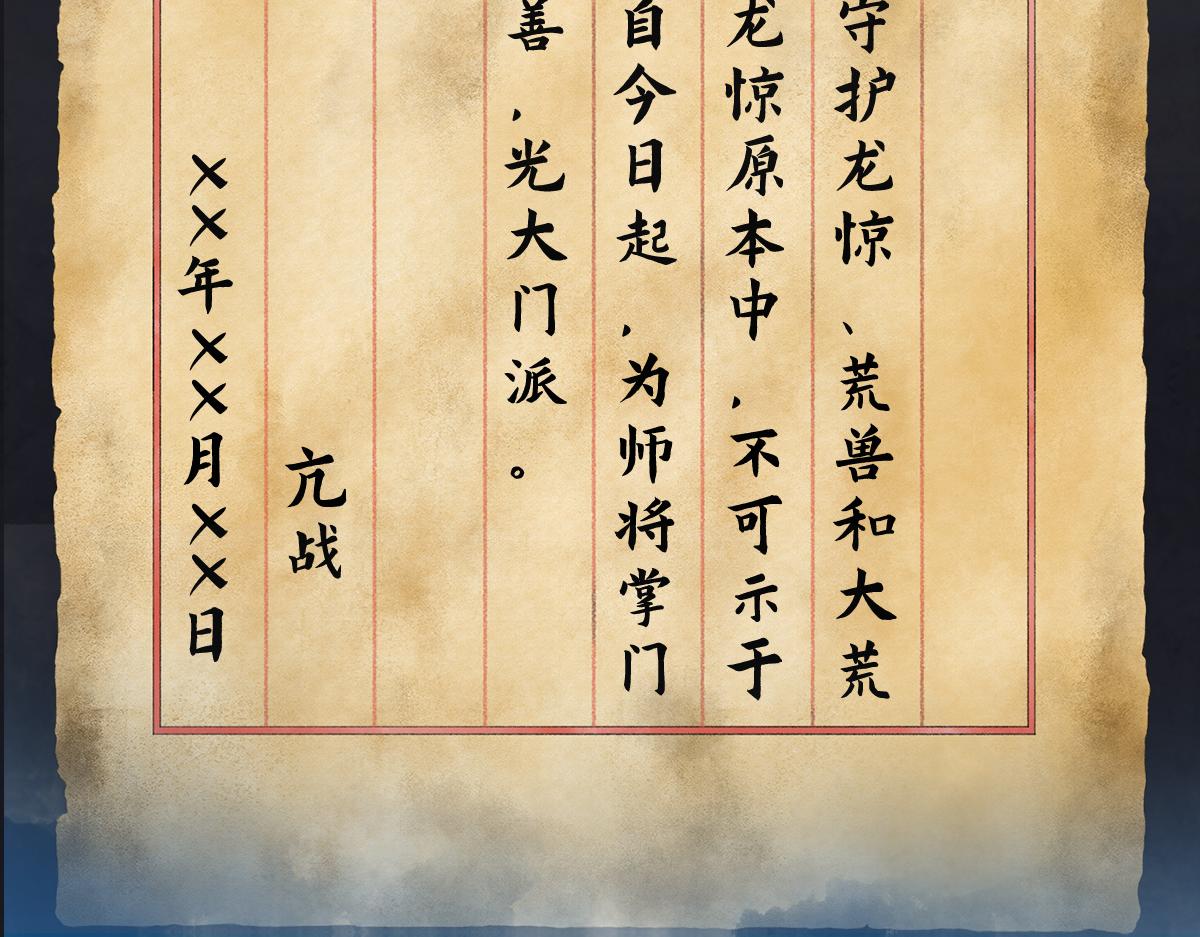 守护龙惊、荒兽和大荒
龙惊原本中，不可示于
自今日起，为师将掌门
善，光大门派。
亢战
××年××月××日